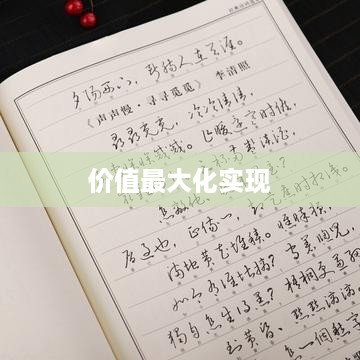 夕阳西下,断肠人在天涯。
《声声慢·寻寻觅觅》 李清照
寻寻觅觅,冷冷清清,
戚戚。乍暖还寒时候,
价值最大化实现
雁过也,正伤心,却是旧时相识。
满地黄花堆积。憔悴损,
如今有谁堪摘?守着窗儿,
独自怎生得黑?梧桐更兼细
点点滴滴。
怎一个愁字